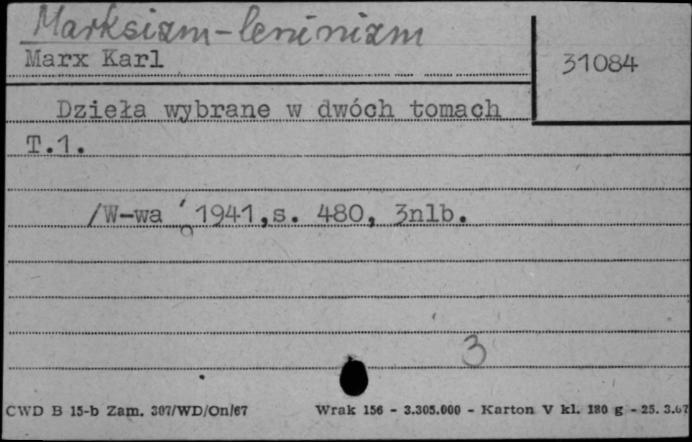 Marksizm-leninizm
Marx Karl
31084
Dzieła wybrane w dwóch tomach
T.1.
/W-wa 1941,s. 480, 3nlb.
3
CWD B 15-b Zam. 307/WD/On/67
Wrak 156 - 3.305.000 - Karton V kl. 180 g - 25. 3.67